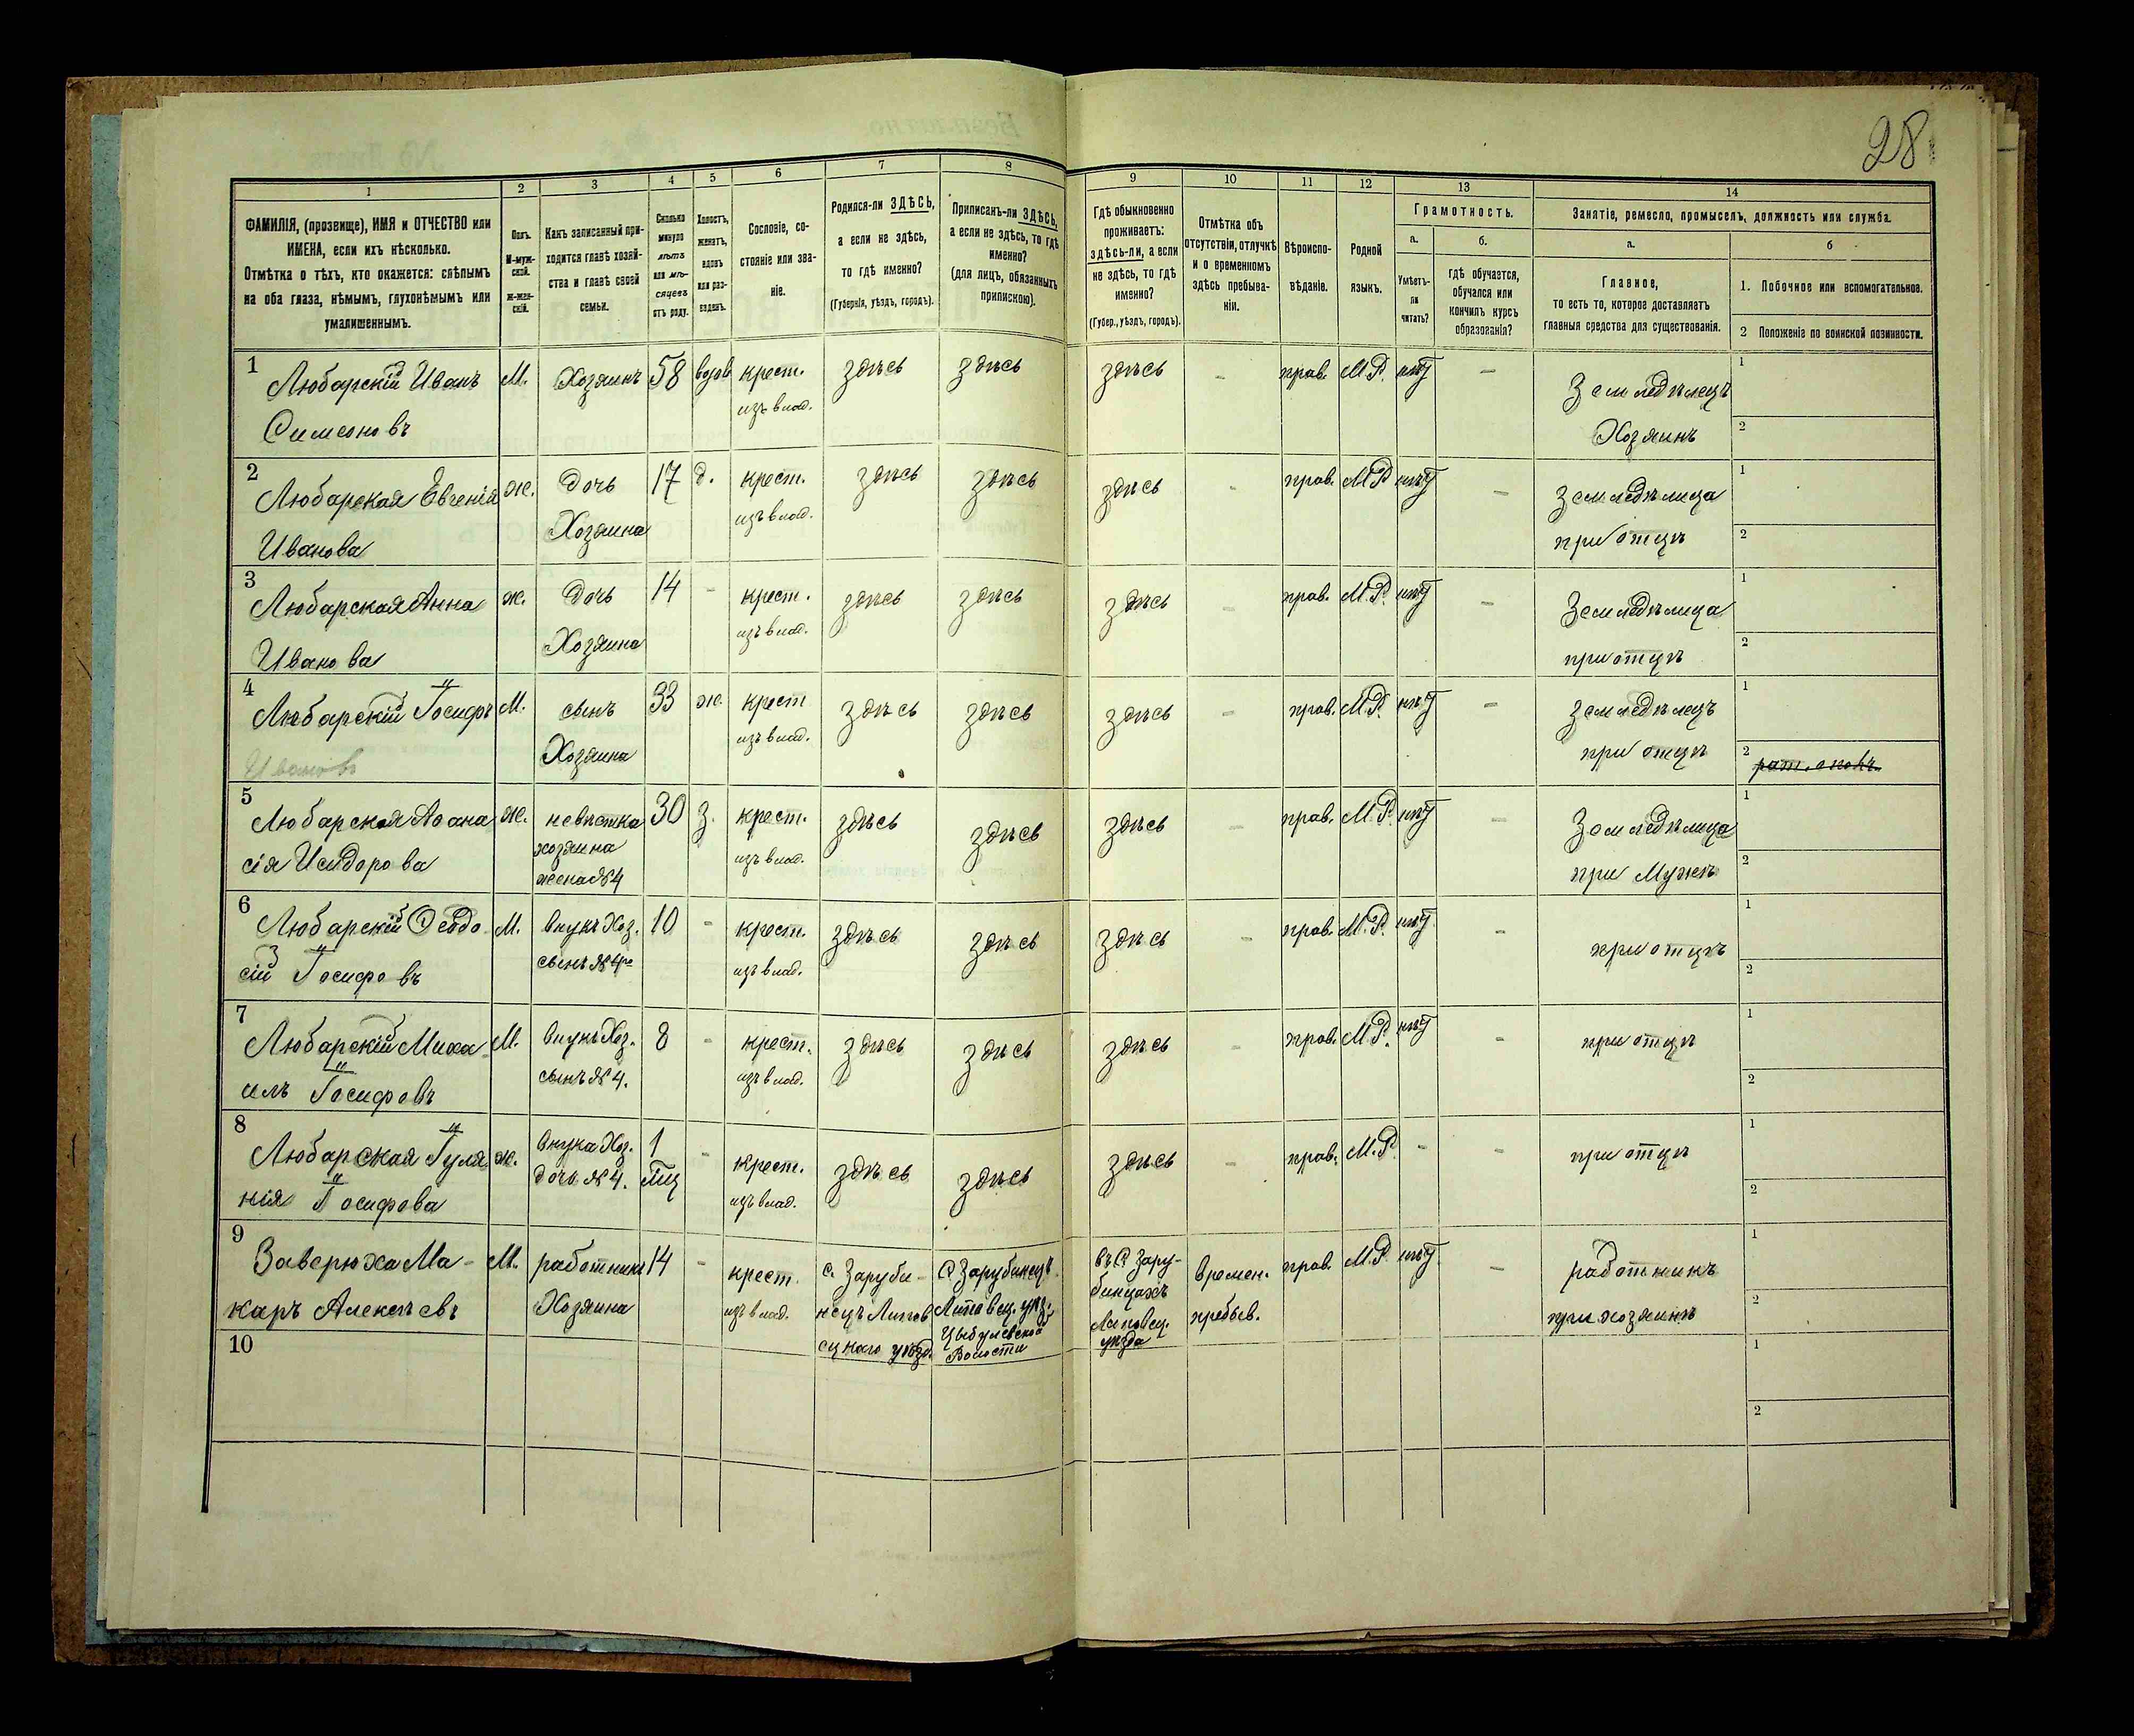 28
1
2
3
4
5
6
7
8
9
10
11
12
13
14
ФАМИЛІЯ, (прозвище), ИМЯ и ОТЧЕСТВО или
ИМЕНА, если ихъ нѣсколько.
Отмѣтка о тѣхъ, кто окажется: слѣпымъ
на оба глаза, нѣмымъ, глухонѣмымъ или
умалишеннымъ.
Полъ.
М-муж-
ской.
ж-жен-
скій.
Какъ записанный при-
ходится главѣ хозяй-
ства и главѣ своей
семьи.
Сколько
минуло
лѣтъ
или мѣ-
сяцевъ
отъ роду.
Холостъ,
женатъ,
вдовъ
или раз-
веденъ.
Сословіе, со-
стояніе или зва-
ніе.
Родился-ли ЗДѢСЬ,
а если не здѣсь,
то гдѣ именно?
(Губернія, уѣздъ, городъ).
Приписанъ-ли ЗДѢСЬ,
а если не здѣсь, то гдѣ
именно?
(для лицъ, обязанныхъ
припискою).
Гдѣ обыкновенно
проживаетъ:
здѣсь-ли, а если
не здѣсь, то гдѣ
именно?
(Губер., уѣздъ, городъ).
Отмѣтка объ
отсутствіи, отлучкѣ
и о временномъ
здѣсь пребыва-
ніи.
Вѣроиспо-
вѣданіе.
Родной
языкъ.
Грамотность.
а.
б.
Умѣетъ-
ли
читать?
гдѣ обучается,
обучался или
кончилъ курсъ
образованія?
Занятіе, ремесло, промыселъ, должность или служба.
а.
б
Главное,
то есть то, которое доставляетъ
главныя средства для существованія.
1. Побочное или вспомогательное.
2 Положеніе по воинской повинности.
1
Любарскій Иванъ М. Хозяинъ 58 вдов крест. здѣсь здѣсь здѣсь - прав. М.Р. нѣт - Земледѣлецъ 1
Симеоновъ изъ влад. Хозяинъ 2
2
Любарская Евгенія ж. дочь 17 д. крест. здѣсь здѣсь здѣсь - прав. М.Р. нѣт - земледѣлица 1
Иванова Хозяина изъ влад. при отцѣ 2
3
Любарская Анна ж. дочь 14 - крест. здѣсь здѣсь здѣсь - прав. М.Р. нѣт - Земледѣлица 1
Иванова Хозяина изъ влад. при отцѣ 2
4
Любарскій Іосифъ М. сынъ 33 ж. крест здѣсь здѣсь здѣсь - прав. М.Р. нѣт - земледѣлецъ 1
Ивановъ Хозяина изъ влад. при отцѣ 2 рат. опол.
5
Любарская Афана ж. невѣстка 30 з. крест. здѣсь здѣсь здѣсь - прав. М.Р. нѣт - Земледѣлица 1
сія Исидорова хозяина изъ влад. при Мужѣ 2
жена №4
6
Любарскій Ѳеодо- М. внукъ Хоз. 10 - крест. здѣсь здѣсь здѣсь - прав. М.Р. нѣт - при отцѣ 1
сій Іосифовъ сынъ №4го изъ влад. 2
7
Любарскій Миха- М. внукъ Хоз. 8 - крест. здѣсь здѣсь здѣсь - прав. М.Р. нѣт - при отцѣ 1
илъ Іосифовъ сынъ №4. изъ влад. 2
8
Любарская Іулiя- ж. внука Хоз. 1 - крест. здѣсь здѣсь здѣсь - прав. М.Р. - - при отцѣ 1
нія Іосифова дочь №4. изъ влад. 2
9
Заверюха Ма- М. работникъ 14 - крест. с. Заруби- с Зарубинецъ въ с Зару- времен. прав. М.Р. нѣт - работникъ 1
каръ Алексѣевъ Хозяина изъ влад. нецъ Липов Липовец. уѣз. бинцахъ пребыв. при хозяинѣ 2
ецкаго уѣзд. Цыбулевской Липовец.
Волости уѣзда
10
1
2